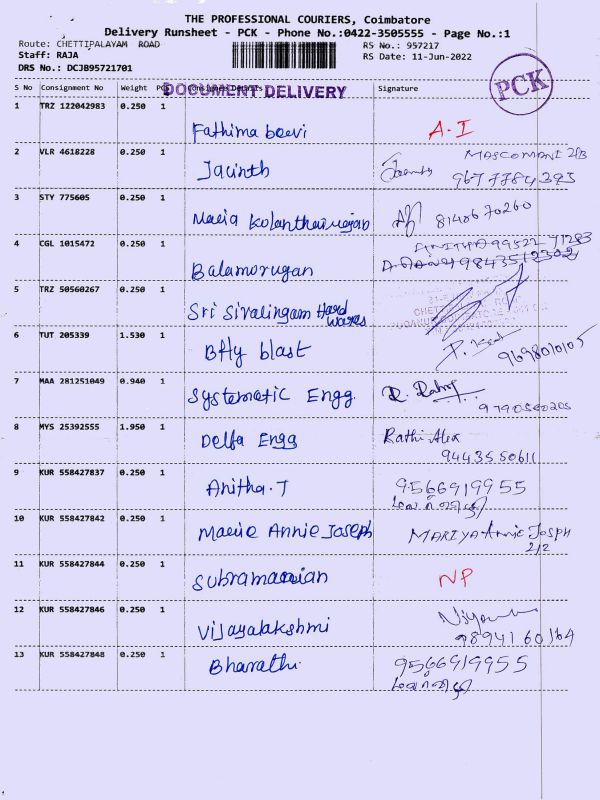 THE PROFESSIONAL COURIERS, Coimbatore
Delivery Runsheet - PCK - Phone No.:0422-3505555 - Page No.:1
Route: CHETTIPALAYAM ROAD
RS No.: 957217
Staff: RAJA
RS Date: 11-Jun-2022
DRS No.: DCJB95721701
PCK
S No Consignment No Weight PCS Consignee Details Signature
DOCUMENT DELIVERY
1 TRZ 122042983 0.250 1
Fathima beevi A.I
2 VLR 4618228 0.250 1
Jacinth
9677784393
3 STY 775605 0.250 1
Maria Kolanthairajan 8148670260
4 CGL 1015472 0.250 1
ANITHA 99522 71283
Balamorugan 9843512302
5 TRZ 50560267 0.250 1
Sri Sivalingam Hard
wares
6 TUT 205339 1.530 1
Bfly blast
9698010105
7 MAA 281251049 0.940 1
Systematic Engg.
9790560205
8 MYS 25392555 1.950 1
Delfa Engg Rathi Alex
9443550611
9 KUR 558427837 0.250 1
Anitha.T 9566919955
10 KUR 558427842 0.250 1
Marie Annie Joseph MARIYA Annie Josph
2/2
11 KUR 558427844 0.250 1
Subramanian NP
12 KUR 558427846 0.250 1
Vijayalakshmi
98941 60164
13 KUR 558427848 0.250 1
Bharathi 9566919955